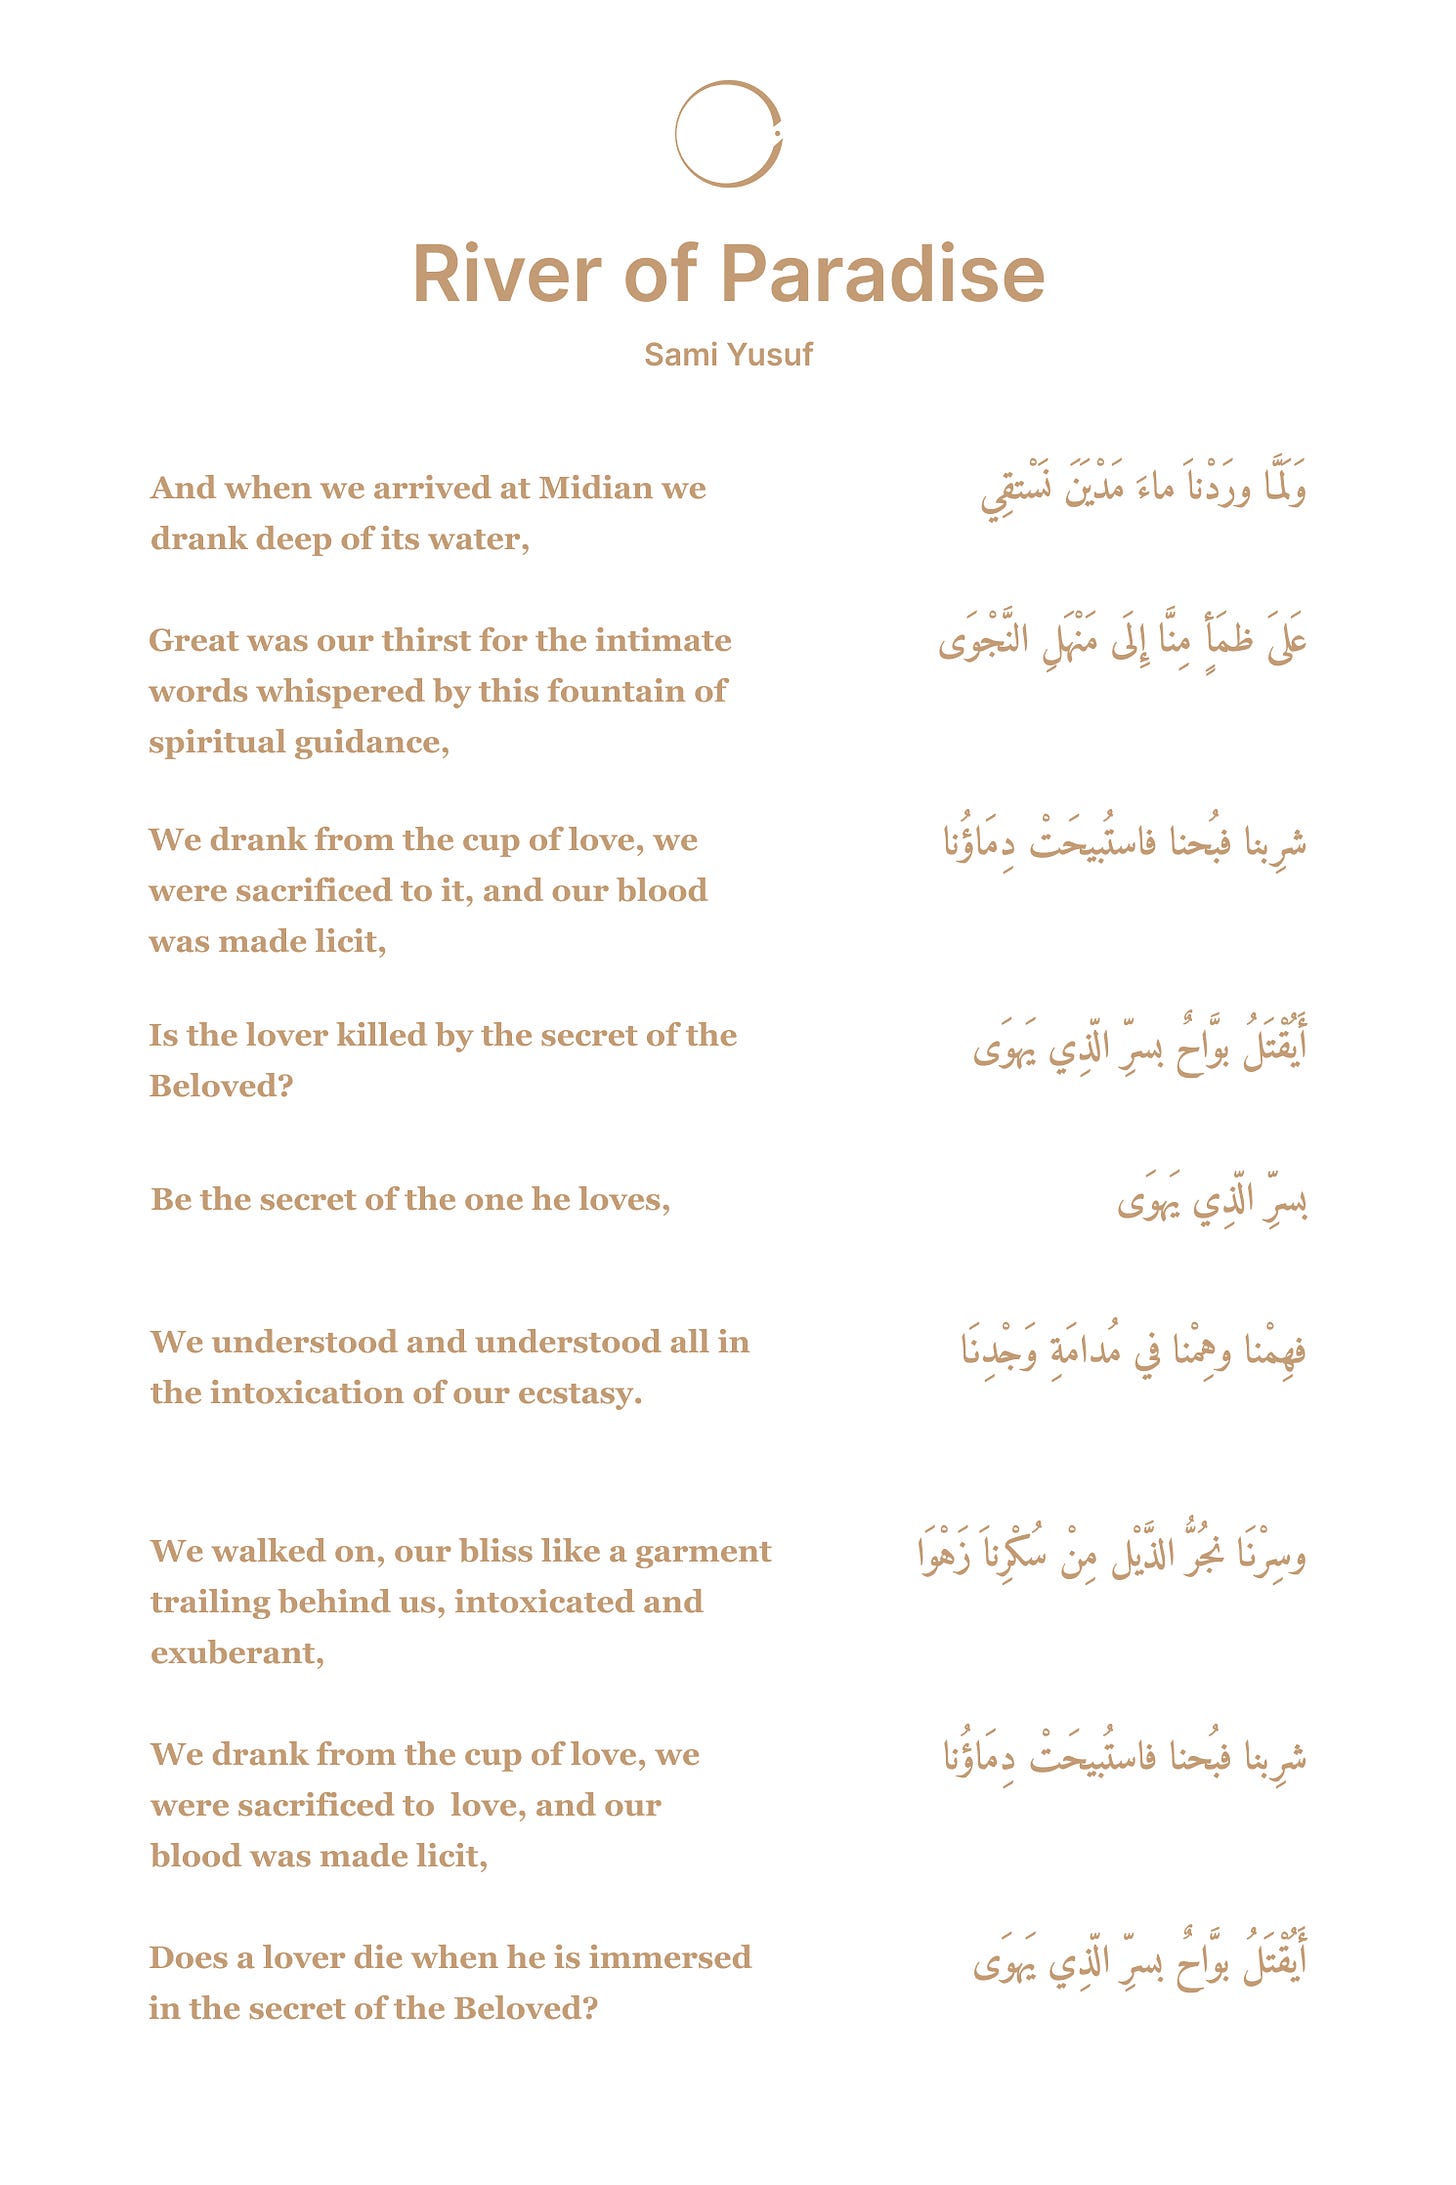 River of Paradise
Sami Yusuf
And when we arrived at Midian we
drank deep of its water,
وَلَمَّا ورَدْناَ ماءَ مَدْيَنَ نَسْتقِي
Great was our thirst for the intimate
words whispered by this fountain of
spiritual guidance,
عَلىَ ظمَأٍ مِنَّا إِلَى مَنْهَلِ النَّجْوَى
We drank from the cup of love, we
were sacrificed to it, and our blood
was made licit,
شرِبنا فبُحنا فاستُبيحَتْ دِمَاؤُنا
Is the lover killed by the secret of the
Beloved?
أَيُقْتَلُ بوَّاحٌ بسرِّ الّذِي يَهوَى
Be the secret of the one he loves,
بسرِّ الّذِي يَهوَى
We understood and understood all in
the intoxication of our ecstasy.
فهِمْنا وهِمْنا في مُدامَةِ وَجْدِنَا
We walked on, our bliss like a garment
trailing behind us, intoxicated and
exuberant,
وسِرْنَا نجُرُّ الذَّيْل مِنْ سُكْرِناَ زَهْوَا
We drank from the cup of love, we
were sacrificed to  love, and our
blood was made licit,
شرِبنا فبُحنا فاستُبيحَتْ دِمَاؤُنا
Does a lover die when he is immersed
in the secret of the Beloved?
أَيُقْتَلُ بوَّاحٌ بسرِّ الّذِي يَهوَى